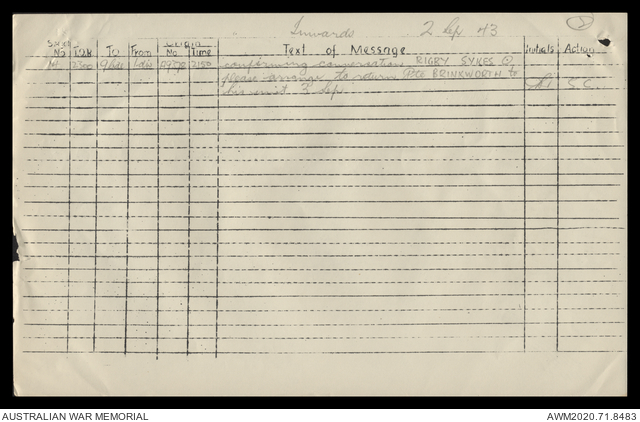 Inwards 2 Sep 43
Serial No T.O.R To From Origin No Time Text of Message Initials Action
2300 9 Div 2150 confirming conversation RIGBY SYKES
please arrange to return Pte BRINKWORTH to
his unit 3 Sep. S.C.
AUSTRALIAN WAR MEMORIAL AWM2020.71.8483